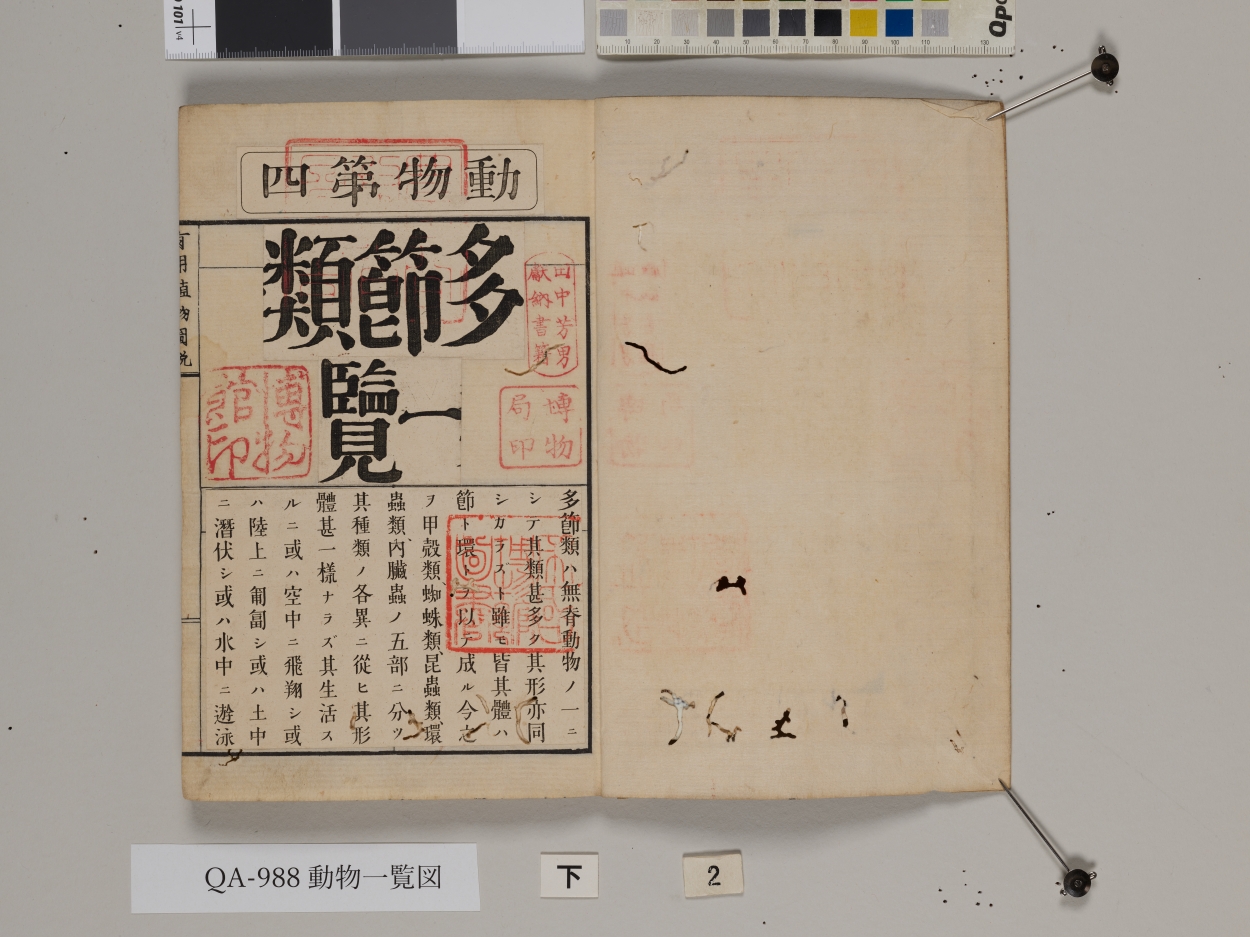 動物第四
多節類
一覽
多節類ハ無脊動物ノ一ニ
シテ其類甚多ク其形亦同
シカラズト雖モ皆其體ハ
節ト環トヲ以テ成ル今之
ヲ甲殻類、蜘蛛類、昆蟲類、環
蟲類、内臟蟲ノ五部ニ分ツ
其種類ノ各異ニ從ヒ其形
體甚一樣ナラズ其生活ス
ルニ或ハ空中ニ飛翔シ或
ハ陸上ニ匍匐シ或ハ土中
ニ潛伏シ或ハ水中ニ遊泳
田中芳男
獻納書籍
博物
局印
博物
館印
QA-988 動物一覧図
下
2